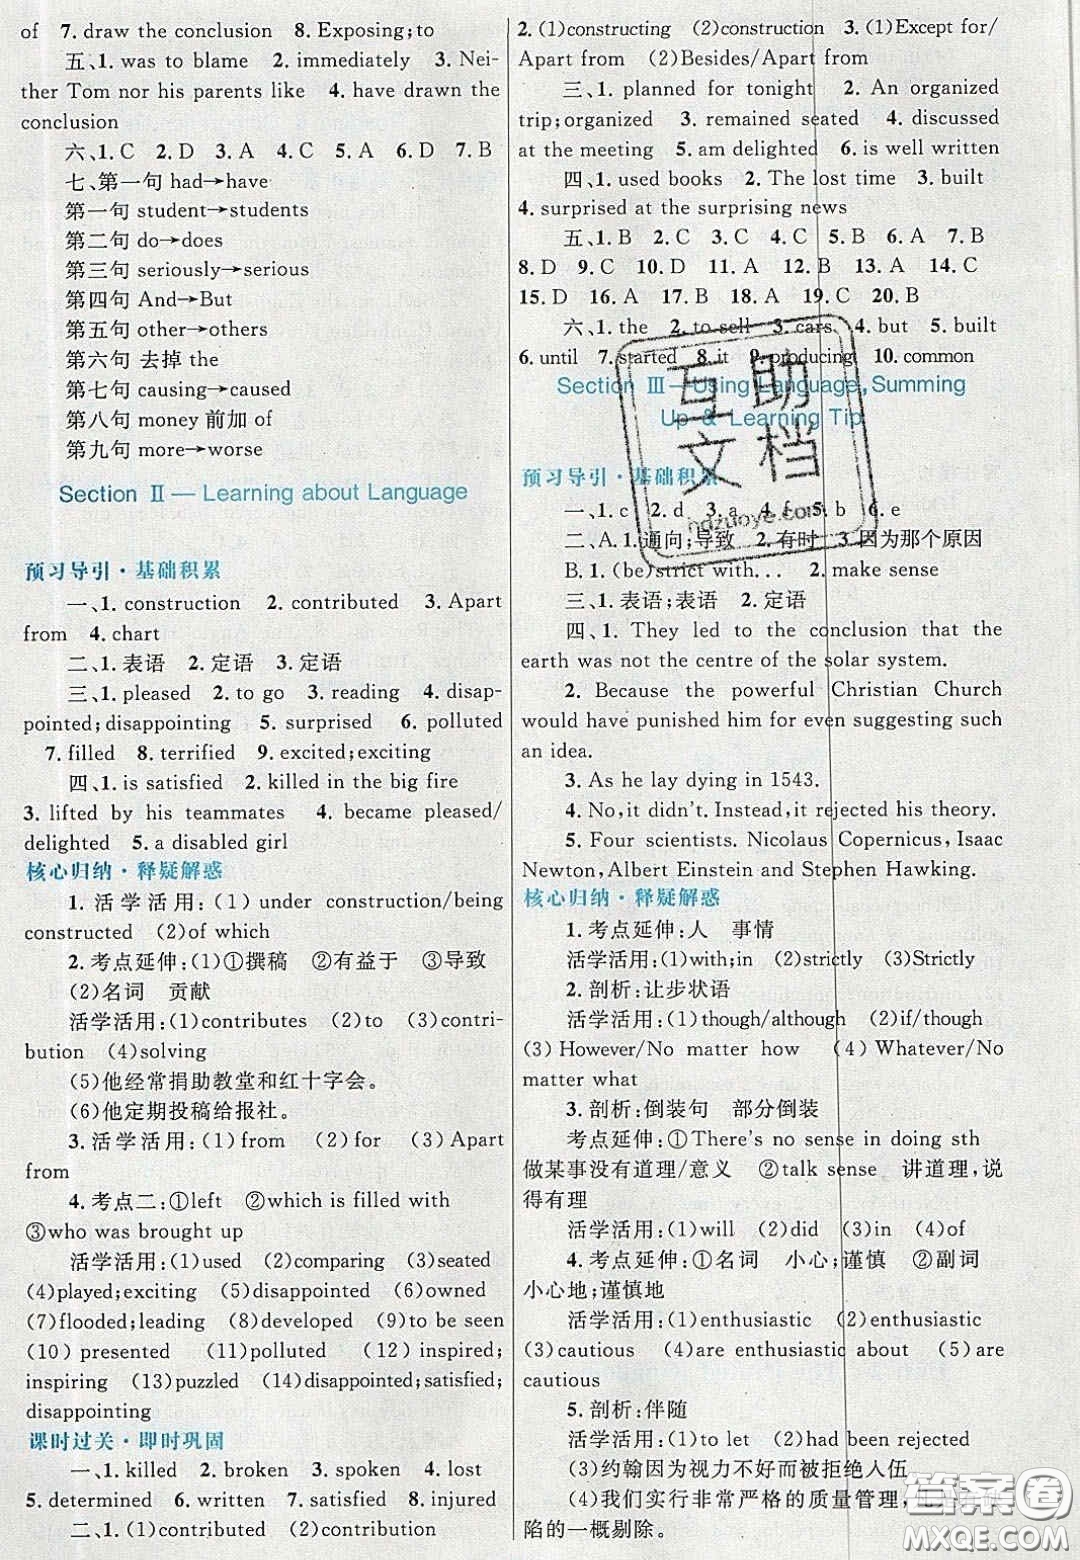 of 7. draw the conclusion 8. Exposing;to
五、1. was to blame 2. immediately 3. Nei-
ther Tom nor his parents like 4. have drawn the
conclusion
六、1. C 2. D 3. A 4. C 5. A 6. D 7. B
七、第一句 had→have
第一句 student→students
第二句 do→does
第三句 seriously→serious
第四句 And→But
第五句 other→others
第六句 去掉 the
第七句 causing→caused
第八句 money 前加 of
第九句 more→worse
Section Ⅱ — Learning about Language
预习导引·基础积累
一、1. construction 2. contributed 3. Apart
from 4. chart
二、1. 表语 2. 定语 3. 定语
三、1. pleased 2. to go 3. reading 4. disap-
pointed;disappointing 5. surprised 6. polluted
7. filled 8. terrified 9. excited;exciting
四、1. is satisfied 2. killed in the big fire
3. lifted by his teammates 4. became pleased/
delighted 5. a disabled girl
核心归纳·释疑解惑
1. 活学活用:(1) under construction/being
constructed (2)of which
2. 考点延伸:(1)①撰稿 ②有益于 ③导致
(2)名词 贡献
活学活用:(1)contributes (2)to (3)contri-
bution (4)solving
(5)他经常捐助教堂和红十字会。
(6)他定期投稿给报社。
3. 活学活用:(1)from (2)for (3)Apart
from
4. 考点二:①left ②which is filled with
③who was brought up
活学活用:(1)used (2)comparing (3)seated
(4)played;exciting (5)disappointed (6)owned
(7)flooded;leading (8)developed (9)to be seen
(10) presented (11)polluted (12) inspired;
inspiring (13)puzzled (14)disappointed;satisfied;
disappointing
课时过关·即时巩固
一、1. killed 2. broken 3. spoken 4. lost
5. determined 6. written 7. satisfied 8. injured
二、1. (1)contributed (2)contribution
2. (1)constructing (2)construction 3. (1)Except for/
Apart from (2)Besides/Apart from
三、1. planned for tonight 2. An organized
trip;organized 3. remained seated 4. discussed
at the meeting 5. am delighted 6. is well written
四、1. used books 2. The lost time 3. built
4. surprised at the surprising news
五、1. B 2. C 3. C 4. C 5. B 6. A 7. B
8. D 9. C 10. D 11. A 12. B 13. A 14. C
15. D 16. A 17. B 18. A 19. C 20. B
六、1. the 2. to sell 3. cars 4. but 5. built
6. until 7. started 8. it 9. producing 10. common
Section Ⅲ — Using Language, Summing
Up & Learning Tip
互助
文档
hdzuoye.com
预习导引·基础积累
一、1. c 2. d 3. a 4. f 5. b 6. e
二、A. 1. 通向;导致 2. 有时 3. 因为那个原因
B. 1. (be)strict with... 2. make sense
三、1. 表语;表语 2. 定语
四、1. They led to the conclusion that the
earth was not the centre of the solar system.
2. Because the powerful Christian Church
would have punished him for even suggesting such
an idea.
3. As he lay dying in 1543.
4. No,it didn't. Instead,it rejected his theory.
5. Four scientists. Nicolaus Copernicus, Isaac
Newton, Albert Einstein and Stephen Hawking.
核心归纳·释疑解惑
1. 考点延伸:人 事情
活学活用:(1)with;in (2)strictly (3)Strictly
2. 剖析:让步状语
活学活用:(1)though/although (2)if/though
(3) However/No matter how (4) Whatever/No
matter what
3. 剖析:倒装句 部分倒装
考点延伸:①There's no sense in doing sth
做某事没有道理/意义 ②talk sense 讲道理,说
得有理
活学活用:(1)will (2)did (3)in (4)of
4. 考点延伸:①名词 小心;谨慎 ②副词
小心地;谨慎地
活学活用:(1)enthusiastic (2)enthusiastic
(3)cautious (4)are enthusiastic about (5)are
cautious
5. 剖析:伴随
活学活用:(1)to let (2)had been rejected
(3)约翰因为视力不好而被拒绝入伍
(4)我们实行非常严格的质量管理,
陷的一概剔除。
答案圈
MXQE.COM